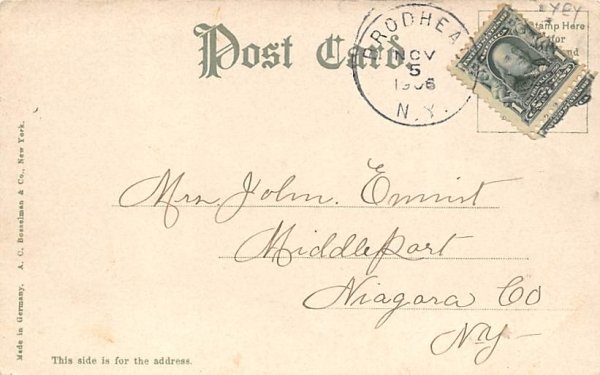 Post Card.
BRODHEA
NOV
5
1906
N.Y.
Stamp Here
for
Mrs. John. Ernist
Middleport
Niagara Co
NY
This side is for the address.
Made in Germany. A. C. Bosselman & Co., New York.